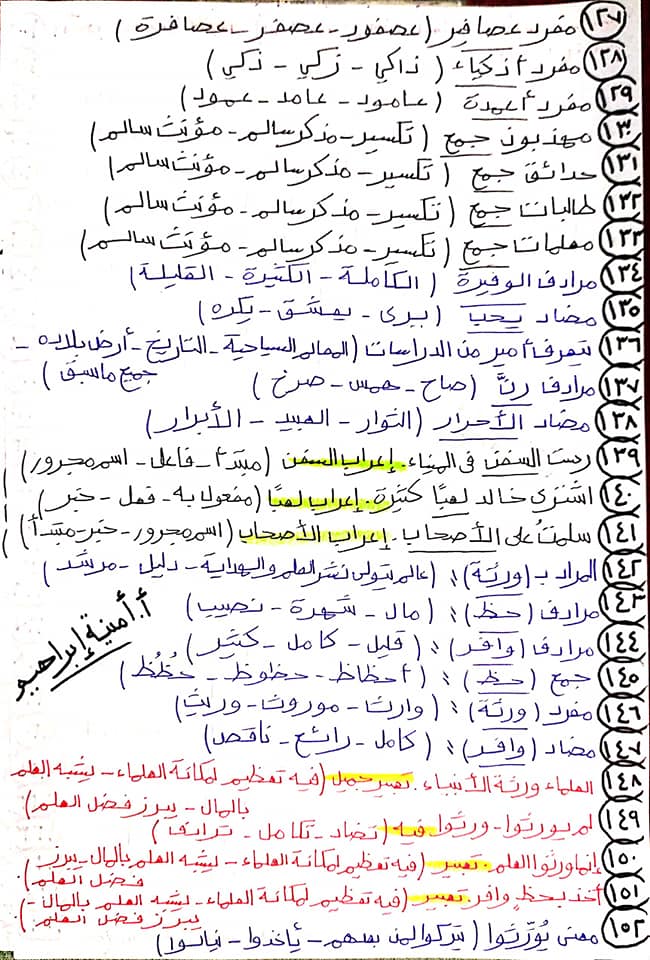 ١٢٧ مفرد عصافير (عصفور - عصفر - عصافرة)
١٢٨ مفرد أذكياء (ذاكي - زكي - ذكي)
١٢٩ مفرد أعمدة (عامود - عامد - عمود)
١٣٠ مهذبون جمع (تكسير - مذكر سالم - مؤنث سالم)
١٣١ حدائق جمع (تكسير - مذكر سالم - مؤنث سالم)
١٣٢ طالبات جمع (تكسير - مذكر سالم - مؤنث سالم)
١٣٣ معلمات جمع (تكسير - مذكر سالم - مؤنث سالم)
١٣٤ مرادف الوفيرة (الكاملة - الكثيرة - القليلة)
١٣٥ مضاد يحب (يرى - يعشق - يكره)
١٣٦ يتعرف أمير من الدراسات (المعالم السياحية - التاريخ - أرض بلاده -
جميع ما سبق)
١٣٧ مرادف رنَّ (صاح - همس - صرخ)
١٣٨ مضاد الأحرار (الثوار - العبيد - الأبرار)
١٣٩ رست السفن في الميناء. إعراب السفن (مبتدأ - فاعل - اسم مجرور)
١٤٠ اشترى خالد لعبًا كثيرة. إعراب لعبًا (مفعول به - فعل - خبر)
١٤١ سلمتُ على الأصحاب. إعراب الأصحاب (اسم مجرور - خبر - مبتدأ)
١٤٢ المراد بـ (ورثة): (عالم يتولى نشر العلم والهداية - دليل - مرشد)
١٤٣ مرادف (حظ): (مال - شهرة - نصيب)
١٤٤ مرادف (وافر): (قليل - كامل - كثير)
١٤٥ جمع (حظ): (أحظاظ - حظوظ - حُظُظ)
١٤٦ مفرد (ورثة): (وارث - موروث - وريث)
١٤٧ مضاد (وافر): (كامل - رائع - ناقص)
أ. أمنية إبراهيم
١٤٨ العلماء ورثة الأنبياء. تعبير جميل (فيه تعظيم لمكانة العلماء - يشبه العلم
بالمال - يبرز فضل العلم)
١٤٩ لم يورثوا - ورثوا فيه (تضاد - تكامل - ترادف)
١٥٠ إنما ورثوا العلم. تعبير (فيه تعظيم لمكانة العلماء - يشبه العلم بالمال - يبرز
فضل العلم)
١٥١ أخذ بحظٍ وافر. تعبير (فيه تعظيم لمكانة العلماء - يشبه العلم بالمال -
يبرز فضل العلم)
١٥٢ معنى يُوَرِّثوا (يتركوا لمن بعدهم - يأخذوا - ينالوا)